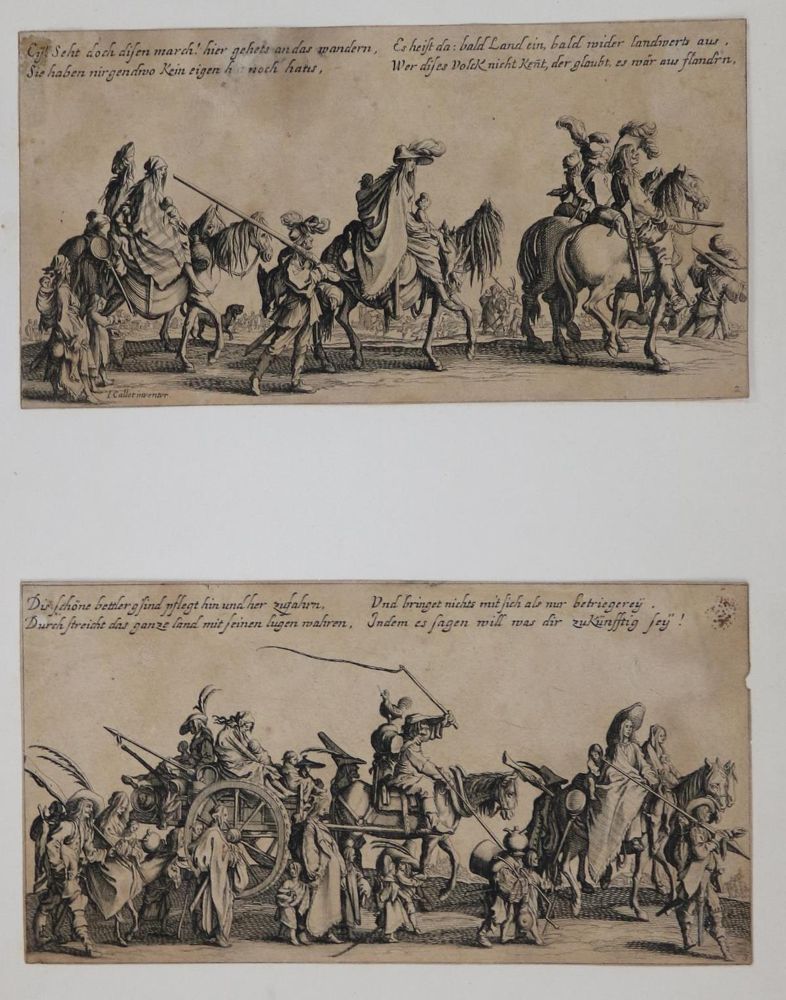 Eÿ! Seht doch disen march! hier gehets an das wandern,
Sie haben nirgendwo Kein eigen noch haus,
Es heist da: bald Land ein, bald wider landwerts aus,
Wer dises VolcK nicht Keñt, der glaubt, es wär aus flandrn,
I Callot inventor.
2
Dis schöne bettlergsind pflegt hin und her zufahrn,
Durchstreicht das ganze land mit seinen lugen wahren,
Vnd bringet nichts mit sich als nur betriegereÿ.
Indem es sagen will was dir zuKünfftig seÿ!